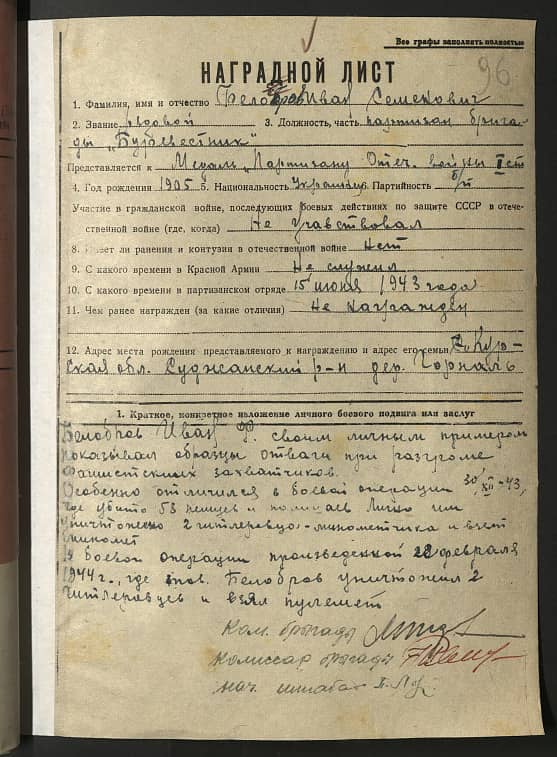 Все графы заполнять полностью
96
НАГРАДНОЙ ЛИСТ
1. Фамилия, имя и отчество Белобров Иван Семенович
2. Звание рядовой 3. Должность, часть партизан брига-
ды "Буревестник"
Представляется к Медаль "Партизану Отеч. войны II ст
4. Год рождения 1905 5. Национальность Украинец Партийность б/п
Участие в гражданской войне, последующих боевых действиях по защите СССР в отече-
ственной войне (где, когда) Не участвовал
8. Имеет ли ранения и контузия в отечественной войне Нет
9. С какого времени в Красной Армии Не служил
10. С какого времени в партизанском отряде 15 июня 1943 года
11. Чем ранее награжден (за какие отличия) Не награжден
12. Адрес места рождения представляемого к награждению и адрес его семьи Кур-
ская обл. Суджанский р-н дер. Горналь
1. Краткое, конкретное изложение личного боевого подвига или заслуг
Белобров Иван своим личным примером
показывал образцы отваги при разгроме
фашистских захватчиков.
Особенно отличился в боевой операции 30/XII-43,
где убито 53 немцев и полицаев Лично им
уничтожено 2 гитлеровца-минометчика и взят
миномет
В боевой операции произведенной 28 февраля
1944 г., где тов. Белобров уничтожил 2
гитлеровцев и взял пулемет
Ком. бригады
Комиссар бригады
Нач. штаба